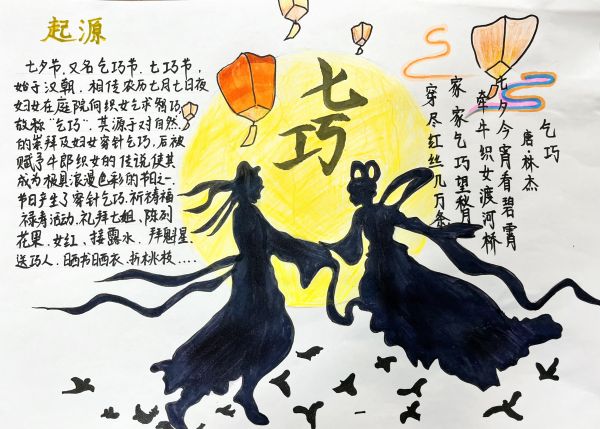 起源
七夕节,又名乞巧节、七巧节,
始于汉朝,相传农历七月七日夜
妇女在庭院向织女乞求智巧,
故称"乞巧"。其源于对自然
的崇拜及妇女穿针乞巧,后被
赋予牛郎织女的传说使其
成为极具浪漫色彩的节日之一
节日产生了穿针乞巧、祈祷福
禄寿活动、礼拜七姐、陈列
花果、女红、接露水、拜魁星、
送巧人、晒书晒衣、折桃枝....
七巧
乞巧
唐 林杰
七夕今宵看碧霄
牵牛织女渡河桥
家家乞巧望秋月
穿尽红丝几万条